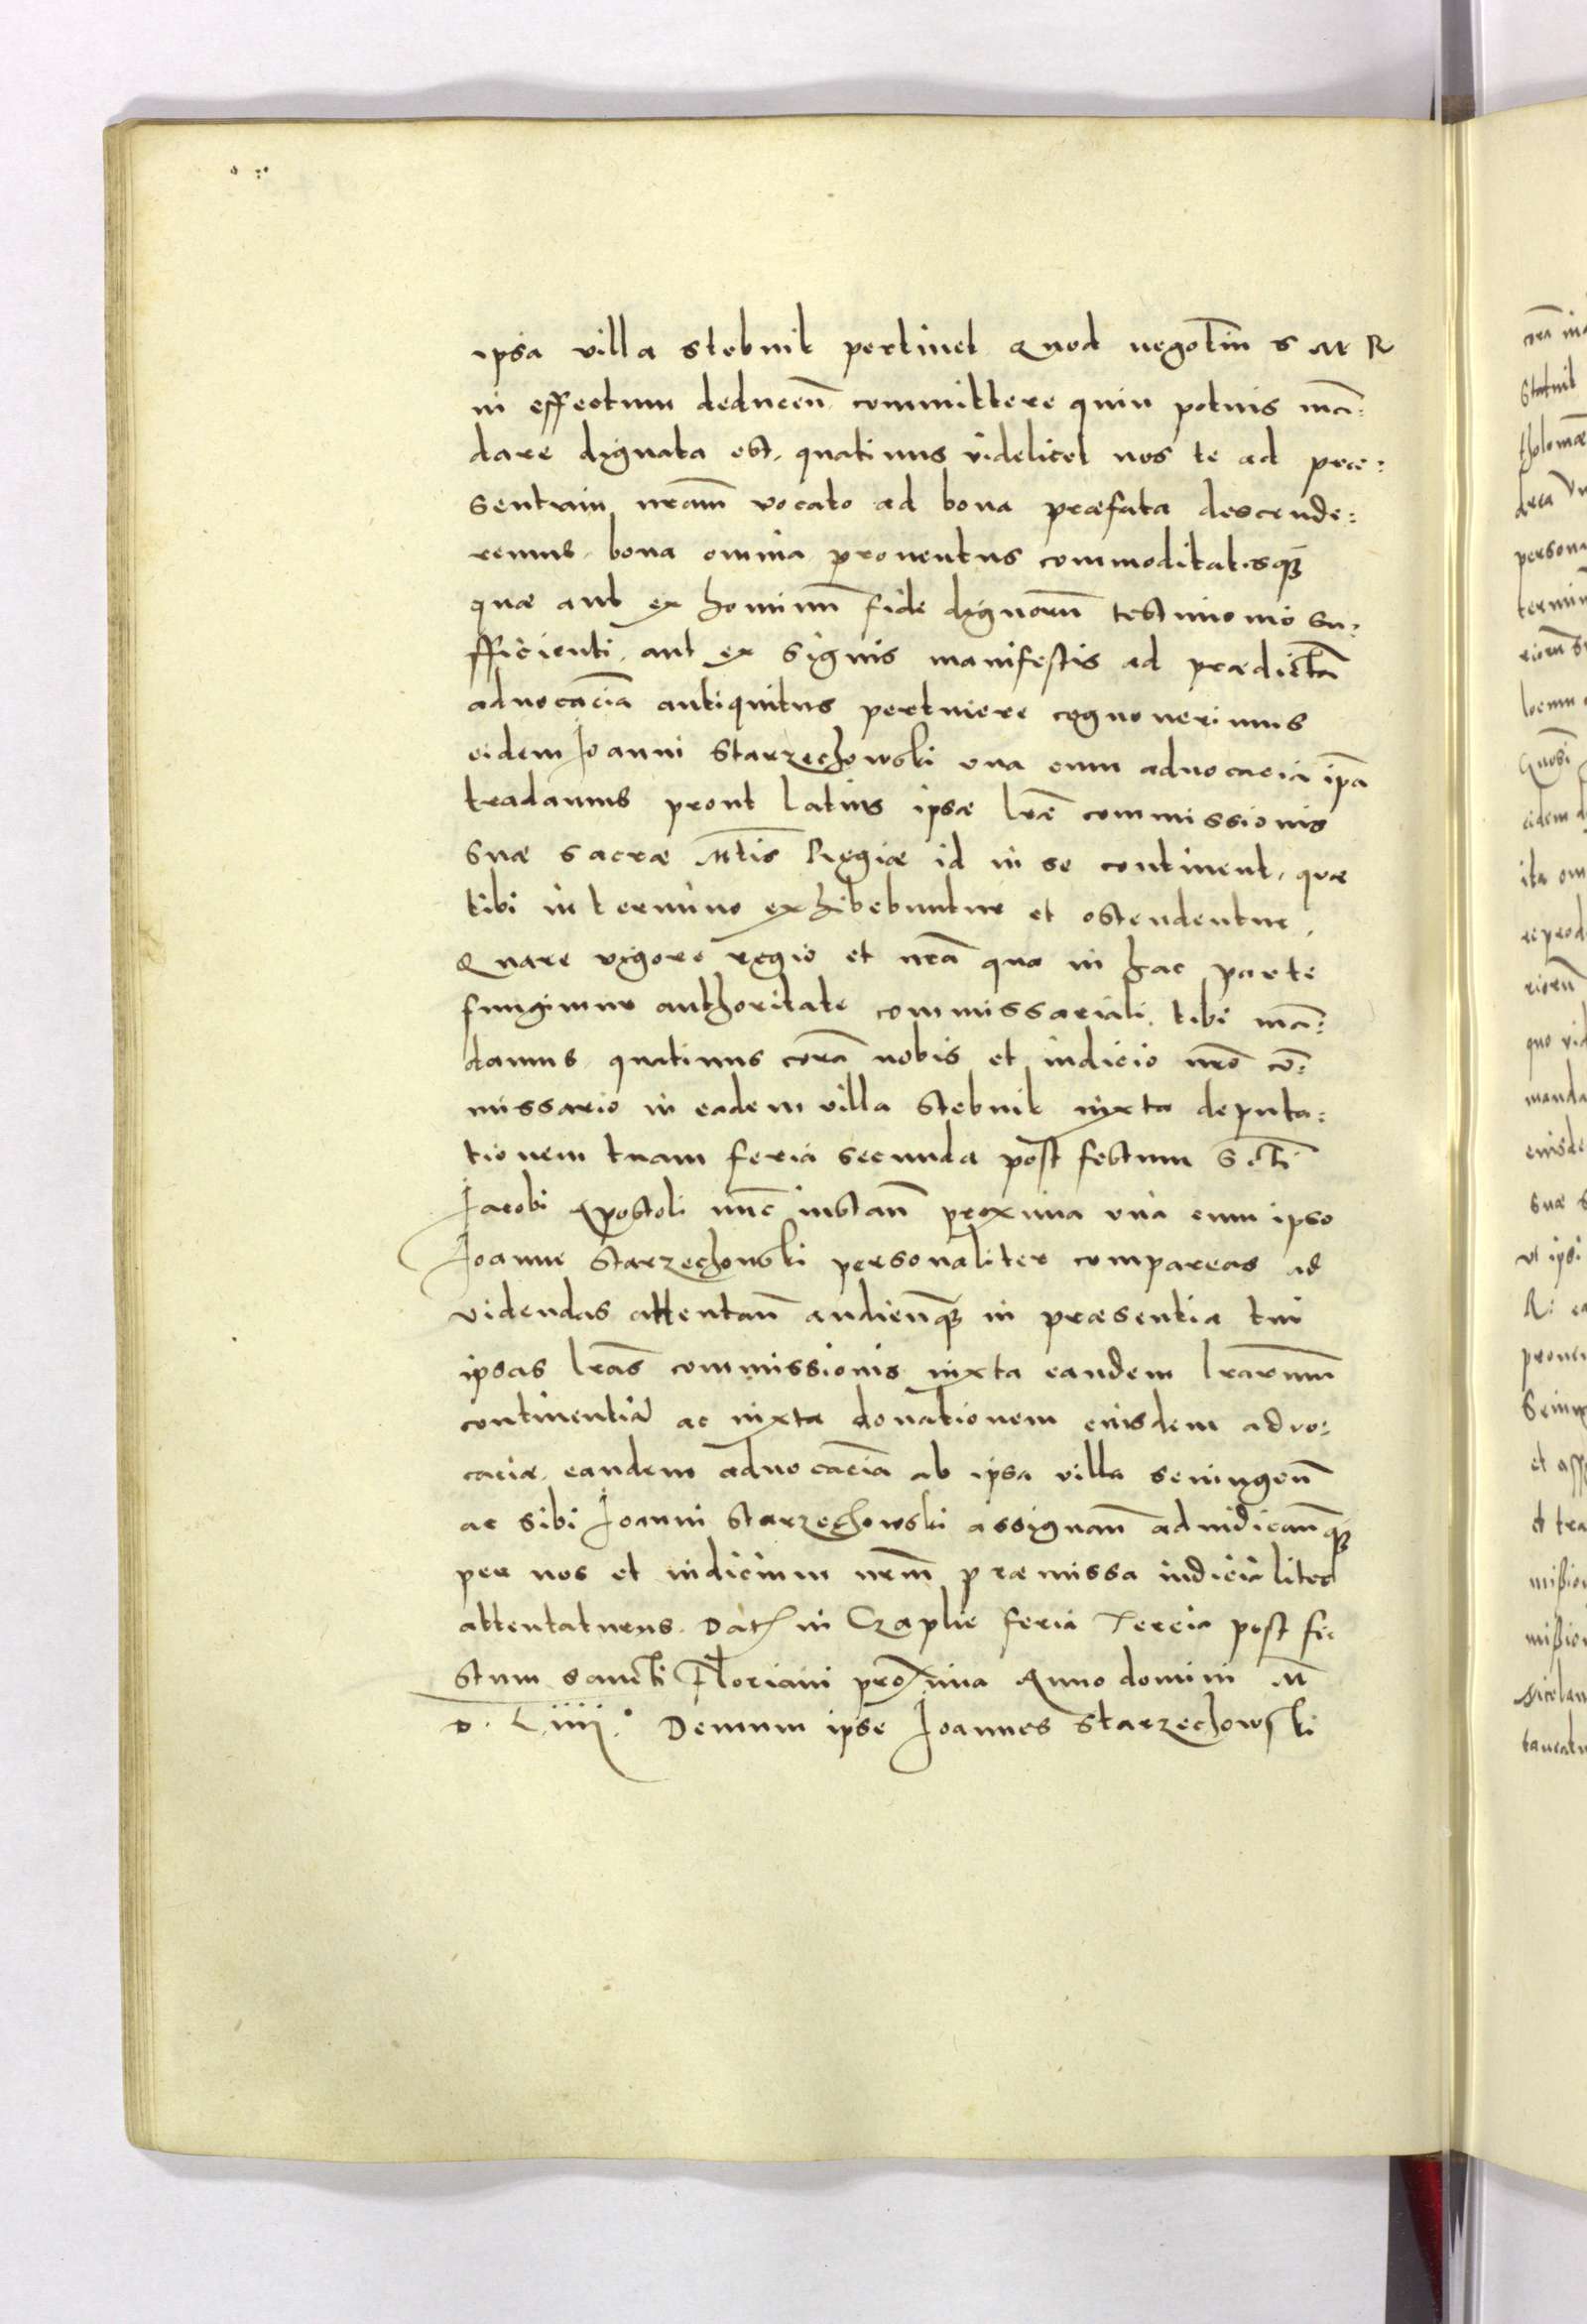 ipsa villa Stebnik pertinet Quod negotiū S M R
in effectum deducen̄ committere quin potius mā:
dare dignata est, quatinus videlicet nos te ad præ:
sentiam nr̄am vocato ad bona præfata descende:
remus, bona omnia prouentus commoditatesqꝫ
quæ aut ex hominū fide dignorū testimonio su:
fficienti, aut ex signis manifestis ad prædictā
aduocaciā antiquitus pertinere cognouerimus
eidem Joanni Starzechowski vna cum aduocacia ip̄a
tradamus prout latius ipsæ lr̄æ commissionis
Suæ Sacræ Mt̄is Regiæ id in se continent, quæ
tibi in termino exhibebuntur et ostendentur,
Quare vigore regio et nr̄a qua in hac parte
fungimur authoritate commissariali, tibi mā:
damus, quatinus corā nobis et iudicio nr̄o cō:
missario in eadem villa Stebnik iuxta deputa:
tionem tuam feria secunda post festum S cti
Jacobi Apostoli nūc instan̄ proxima vna cum ipso
Joanne Starzechowski personaliter compareas ad
videndas attentan̄ audienqꝫ in præsentia tui
ipsas lr̄as commissionis iuxta eandem lr̄arum
continentiā ac iuxta donationem eiusdem aduo:
caciæ, eandem aduocaciā ab ipsa villa seiungen̄
ac sibi Joanni Starzechowski assignan̄ adiudicanqꝫ
per nos et iudicium nr̄m præmissa iudicialiter
attentaturus. Dat in Czaplie feria Tercia post fe
stum sancti Floriani proxima Anno domini M
D. L iiij.° Demum ipse Joannes Starzechowski